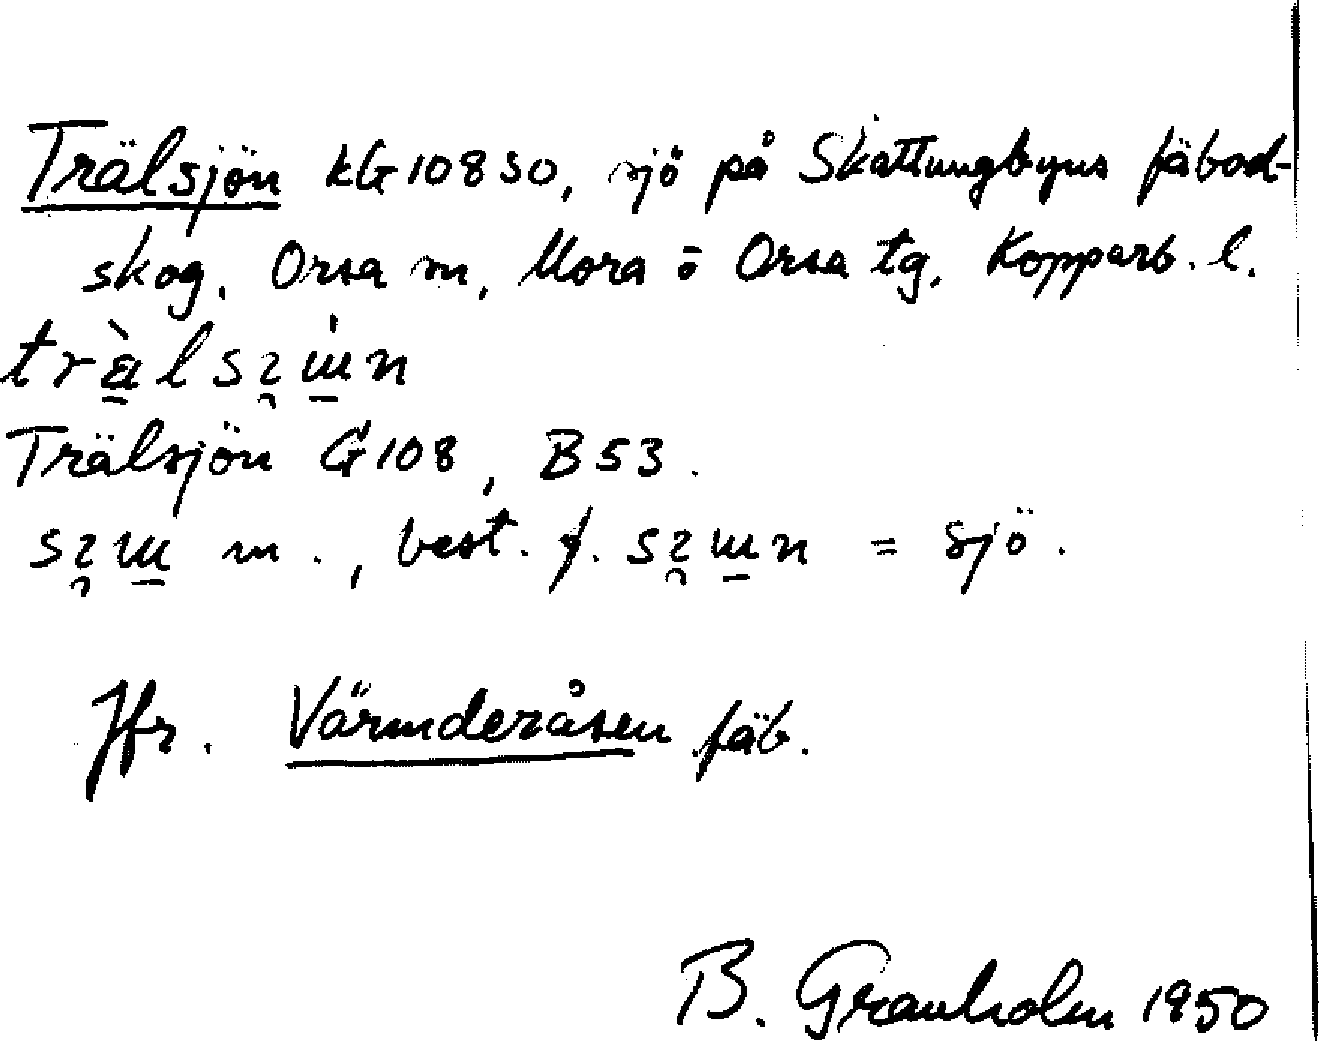 Trälsjön kG 108 SO, sjö på Skattungbyns fäbod-
skog, Orsa m, Mora o Orsa tg, Kopparb. l.
Trälsjön G 108, B 53.
m., best. f. = sjö.
Jfr. Värmderåsen fäb.
B. Granholm 1950